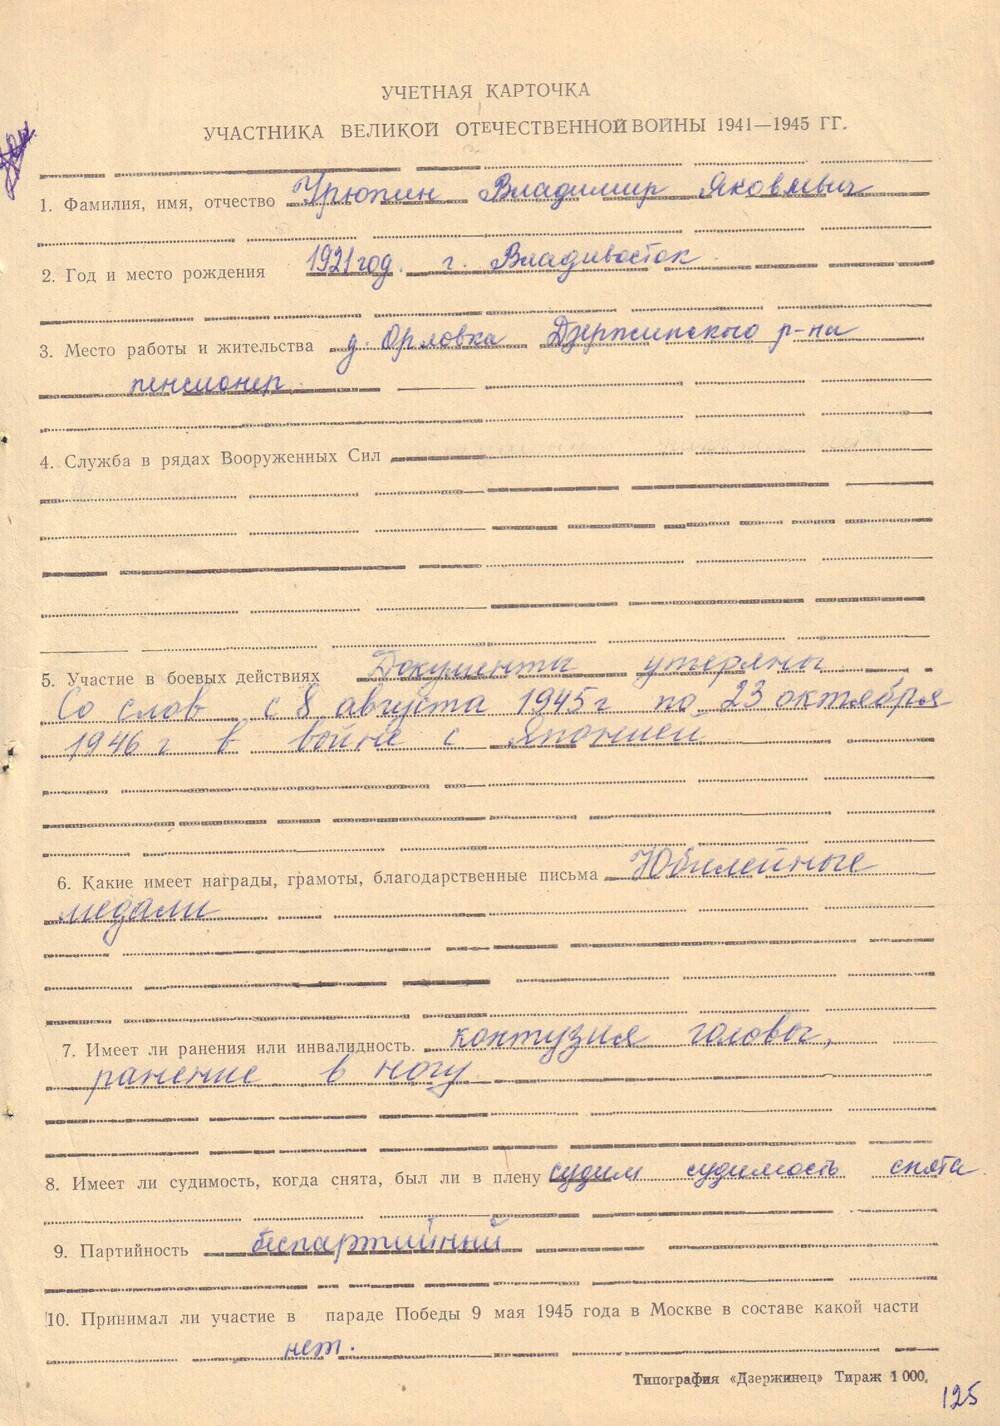 УЧЕТНАЯ КАРТОЧКА
УЧАСТНИКА ВЕЛИКОЙ ОТЕЧЕСТВЕННОЙ ВОЙНЫ 1941—1945 ГГ.
1. Фамилия, имя, отчество Урюпин Владимир Яковлевич
2. Год и место рождения 1921 год. г. Владивосток
3. Место работы и жительства д. Орловка Дзержинского р-на
пенсионер
4. Служба в рядах Вооруженных Сил
5. Участие в боевых действиях Документы утеряны
Со слов с 8 августа 1945 г по 23 октября
1946 г в войне с Японией
6. Какие имеет награды, грамоты, благодарственные письма Юбилейные
медали
7. Имеет ли ранения или инвалидность. контузия головы,
ранение в ногу
8. Имеет ли судимость, когда снята, был ли в плену судим судимость снята
9. Партийность беспартийный
10. Принимал ли участие в параде Победы 9 мая 1945 года в Москве в составе какой части
нет.
Типография «Дзержинец» Тираж 1 000.
125